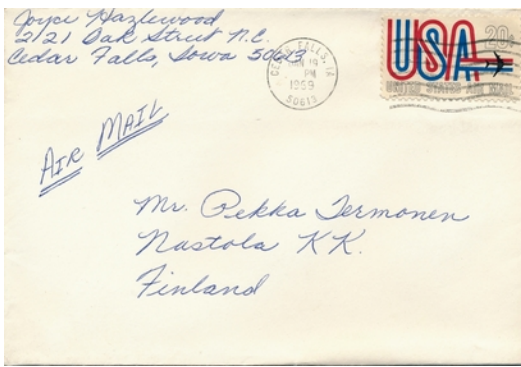 Joyce Hazlewood
2121 Oak Street N.E.
Cedar Falls, Iowa 50613
CEDAR FALLS, IA
JAN 19
PM
1969
50613
USA 20c
UNITED STATES AIR MAIL
AIR MAIL
Mr. Pekka Termonen
Nastola KK.
Finland